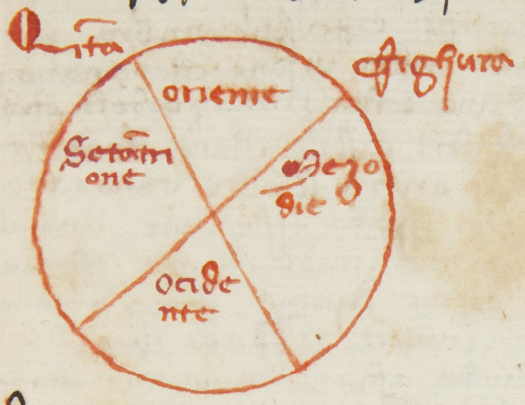 Quīta
ffighura
oriente
Setōtri
one
Mezo
die
ocide
nte